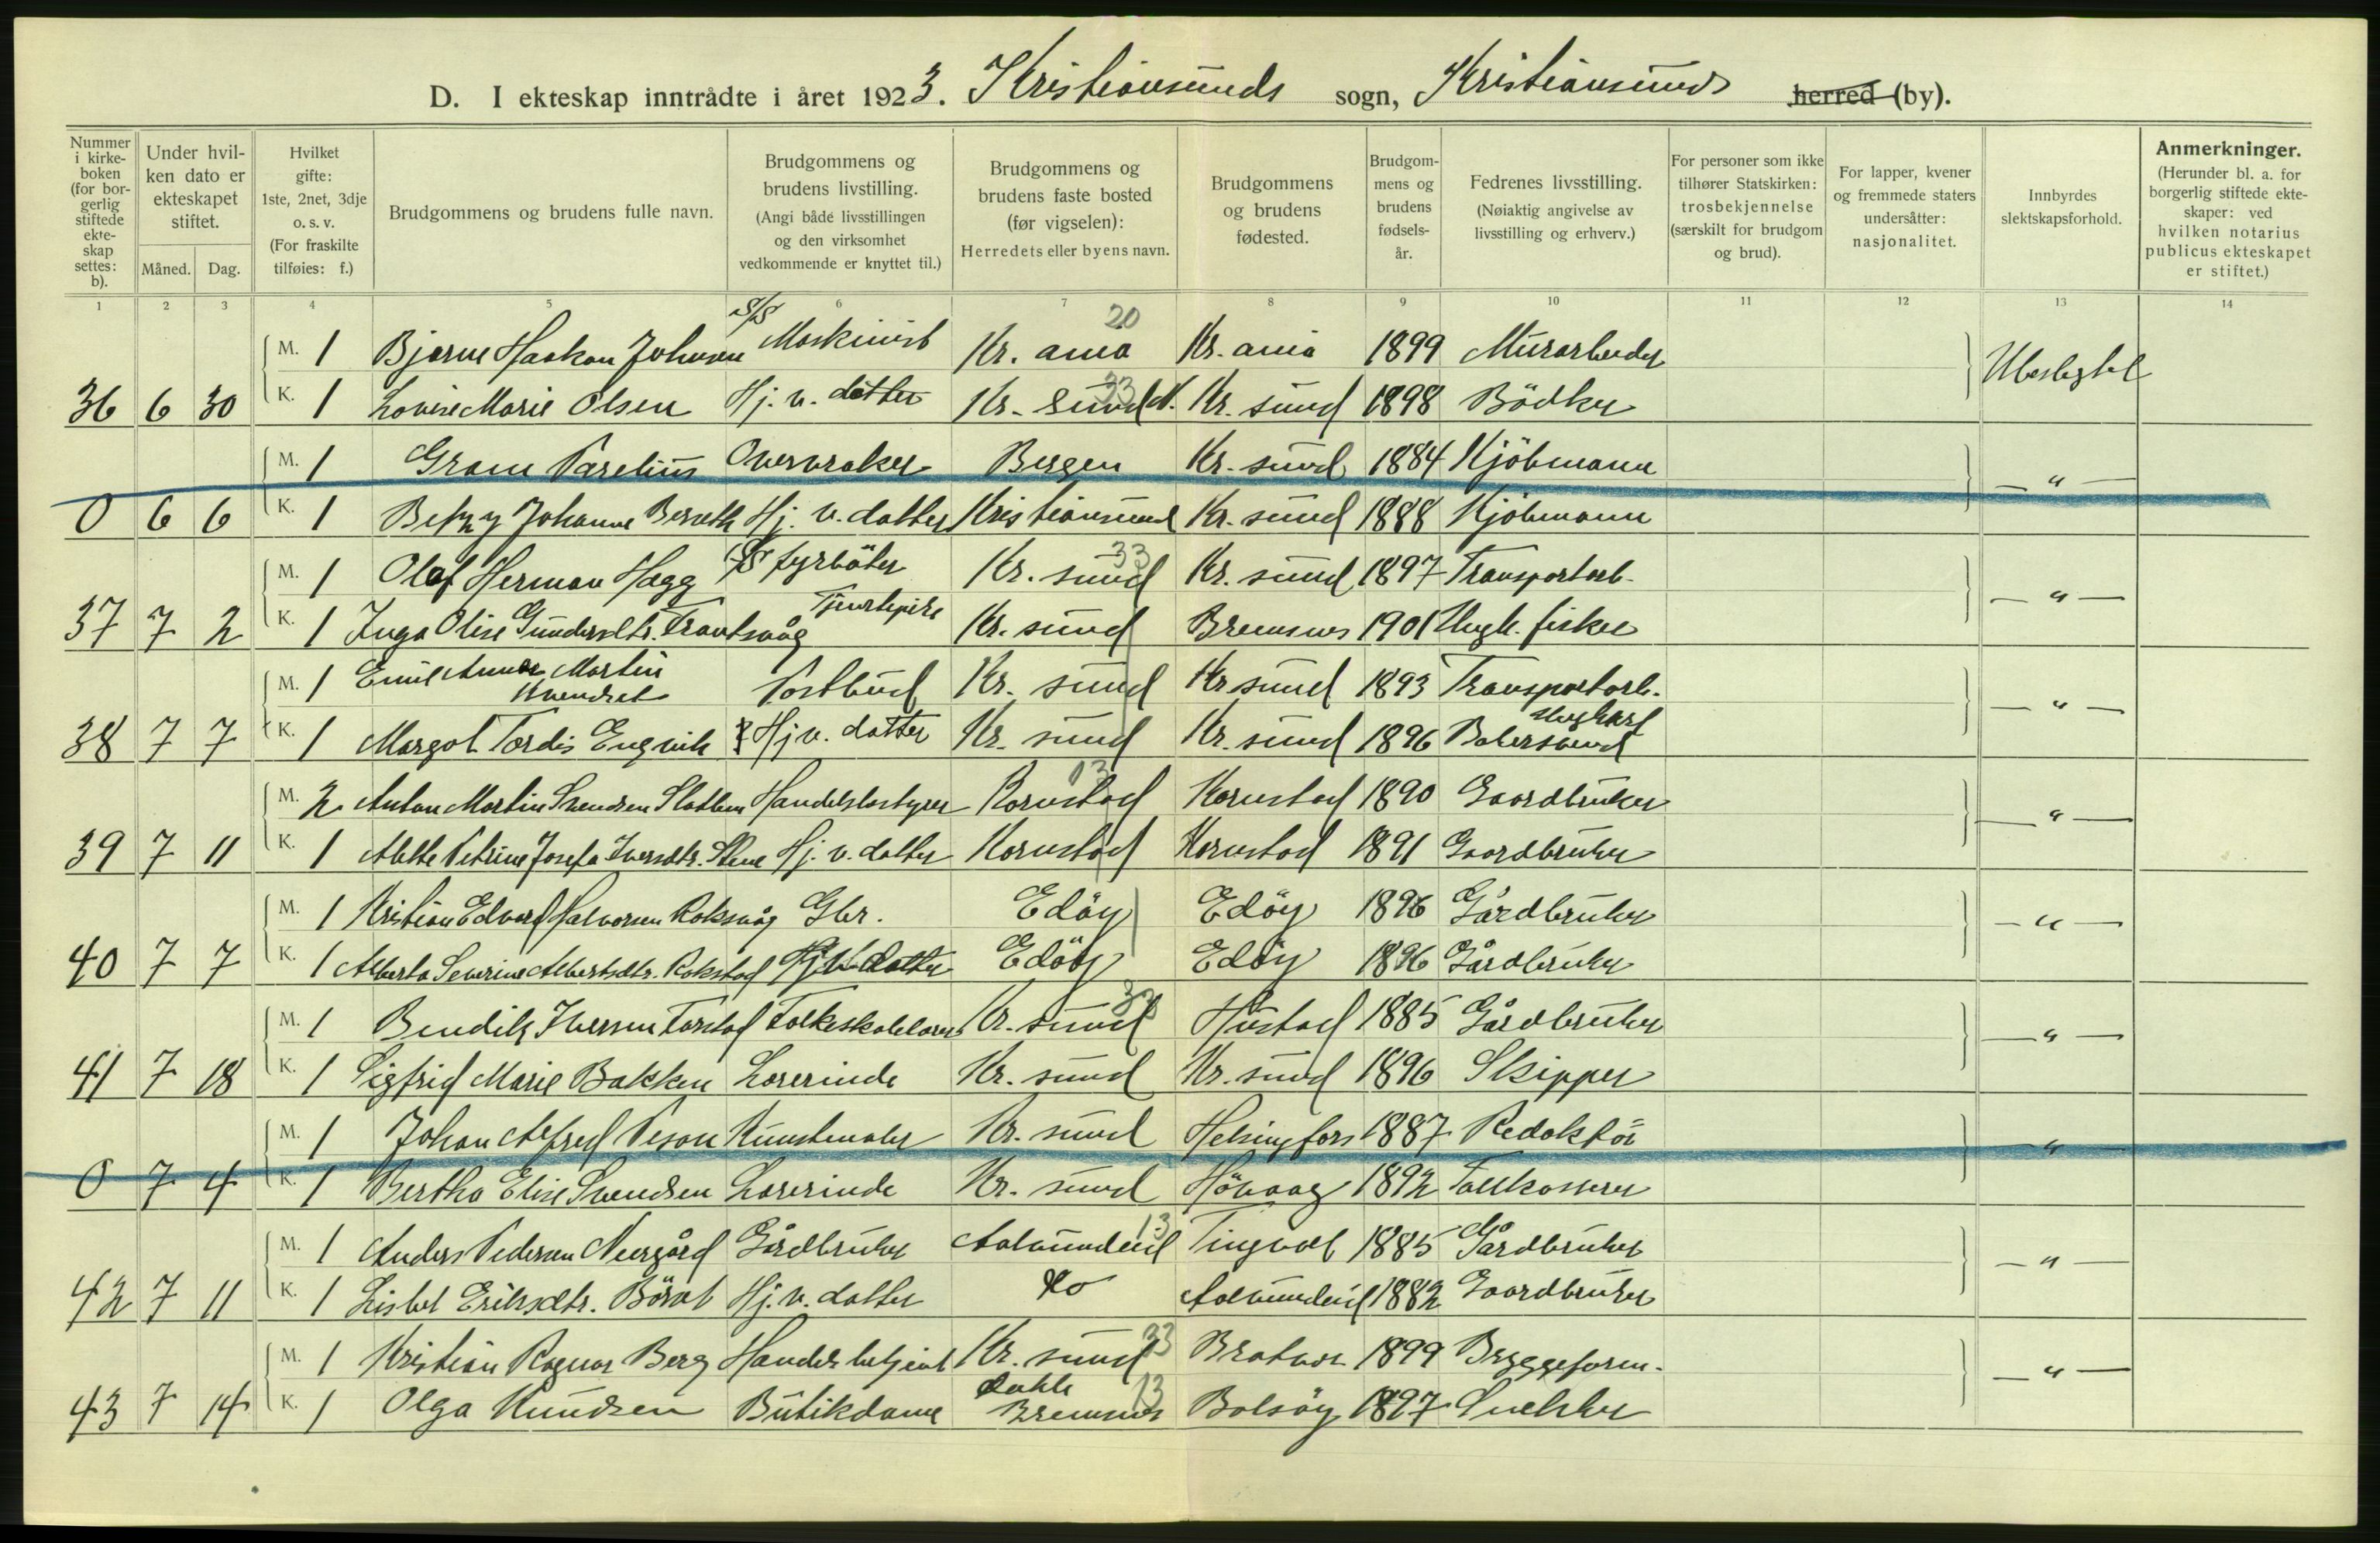 D. I ekteskap inntrådte i året 1923. Kristiansunds sogn, Kristiansunds herred (by).
Nummer i kirkeboken (for borgerlig stiftede ekteskap settes: b).
Under hvilken dato er ekteskapet stiftet.
Måned. Dag.
Hvilket gifte: 1ste, 2net, 3dje o. s. v. (For fraskilte tilføies: f.)
Brudgommens og brudens fulle navn.
Brudgommens og brudens livstilling. (Angi både livsstillingen og den virksomhet vedkommende er knyttet til.)
Brudgommens og brudens faste bosted (før vigselen): Herredets eller byens navn.
Brudgommens og brudens fødested.
Brudgommens og brudens fødselsår.
Fedrenes livsstilling. (Nøiaktig angivelse av livsstilling og erhverv.)
For personer som ikke tilhører Statskirken: trosbekjennelse (særskilt for brudgom og brud).
For lapper, kvener og fremmede staters undersåtter: nasjonalitet.
Innbyrdes slektskapsforhold.
Anmerkninger. (Herunder bl. a. for borgerlig stiftede ekteskaper: ved hvilken notarius publicus ekteskapet er stiftet.)
1 2 3 4 5 6 7 8 9 10 11 12 13 14
M. 1 Bjarne Haakon Johnsen S/S Maskinist Kr. ania 20 Kr. ania 1899 Murarbeider Ubeslegtet
36 6 30 K. 1 Lovise Marie Olsen Hj. v. datter Kr. sund N. 33 Kr. sund 1898 Bödker
M. 1 Gram Parelius Overvraker Bergen Kr. sund 1884 Kjöbmann — " —
0 6 6 K. 1 Betzy Johanne Hj. v. datter Kristiansund Kr. sund 1888 Kjöbmann
M. 1 Olaf Herman Hagg S/S fyrböter Kr. sund 33 Kr. sund 1897 Transportarb. — " —
37 7 2 K. 1 Inga Olise Gundersdtr. Trantvåg Tjenstepike Kr. sund Bremsnes 1901 fisker
M. 1 Emil Martin Kr. sund Kr sund 1893 Transportarb. — " —
Postbud
38 7 7 K. 1 Margot Tordis Engvik Hj v. datter Kr. sund Kr. sund 1896
M. 2 Anton Martin Svendsen Handelsbestyrer Kornstad 13 Kornstad 1890 Gaardbruker — " —
39 7 11 K. 1 Petrine Josefa Iversdtr. Hj. v. datter Kornstad Kornstad 1891 Gaardbruker
M. 1 Kristian Edvard Halvorsen Roksvåg Gbr. Edöy Edöy 1896 Gårdbruker — " —
40 7 7 K. 1 Alberta Severine Albertsdtr. Rokstad Hj v datter Edöy Edöy 1896 Gårdbruker
M. 1 Bendik Iversen Farstad Folkeskolelærer Kr. sund 33 Hustad 1885 Gårdbruker — " —
41 7 18 K. 1 Sigfrid Marie Bakken Lærerinde Kr. sund Kr. sund 1896 Skipper
M. 1 Johan Alfred Kunstmaler Kr. sund Helsingfors 1887 Redaktör "
0 7 4 K. 1 Bertha Elise Svendsen Lærerinde Kr. sund Hövaag 1892 Tollkasserer
M. 1 Anders Pedersen Neergård Gårdbruker Aalvundeid 13 Tingvoll 1885 Gårdbruker — " —
42 7 11 K. 1 Lisbet Eriksdtr. Hj. v. datter do Aalvundeid 1882 Gaardbruker
M. 1 Kristian Ragnar Berg Handelsbetjent Kr. sund 33 Brattvær 1899 Byggeform. — " —
43 7 14 K. 1 Olga Knudsen Butikdame Dahle Bremsnes 13 Bolsöy 1897 Snekker